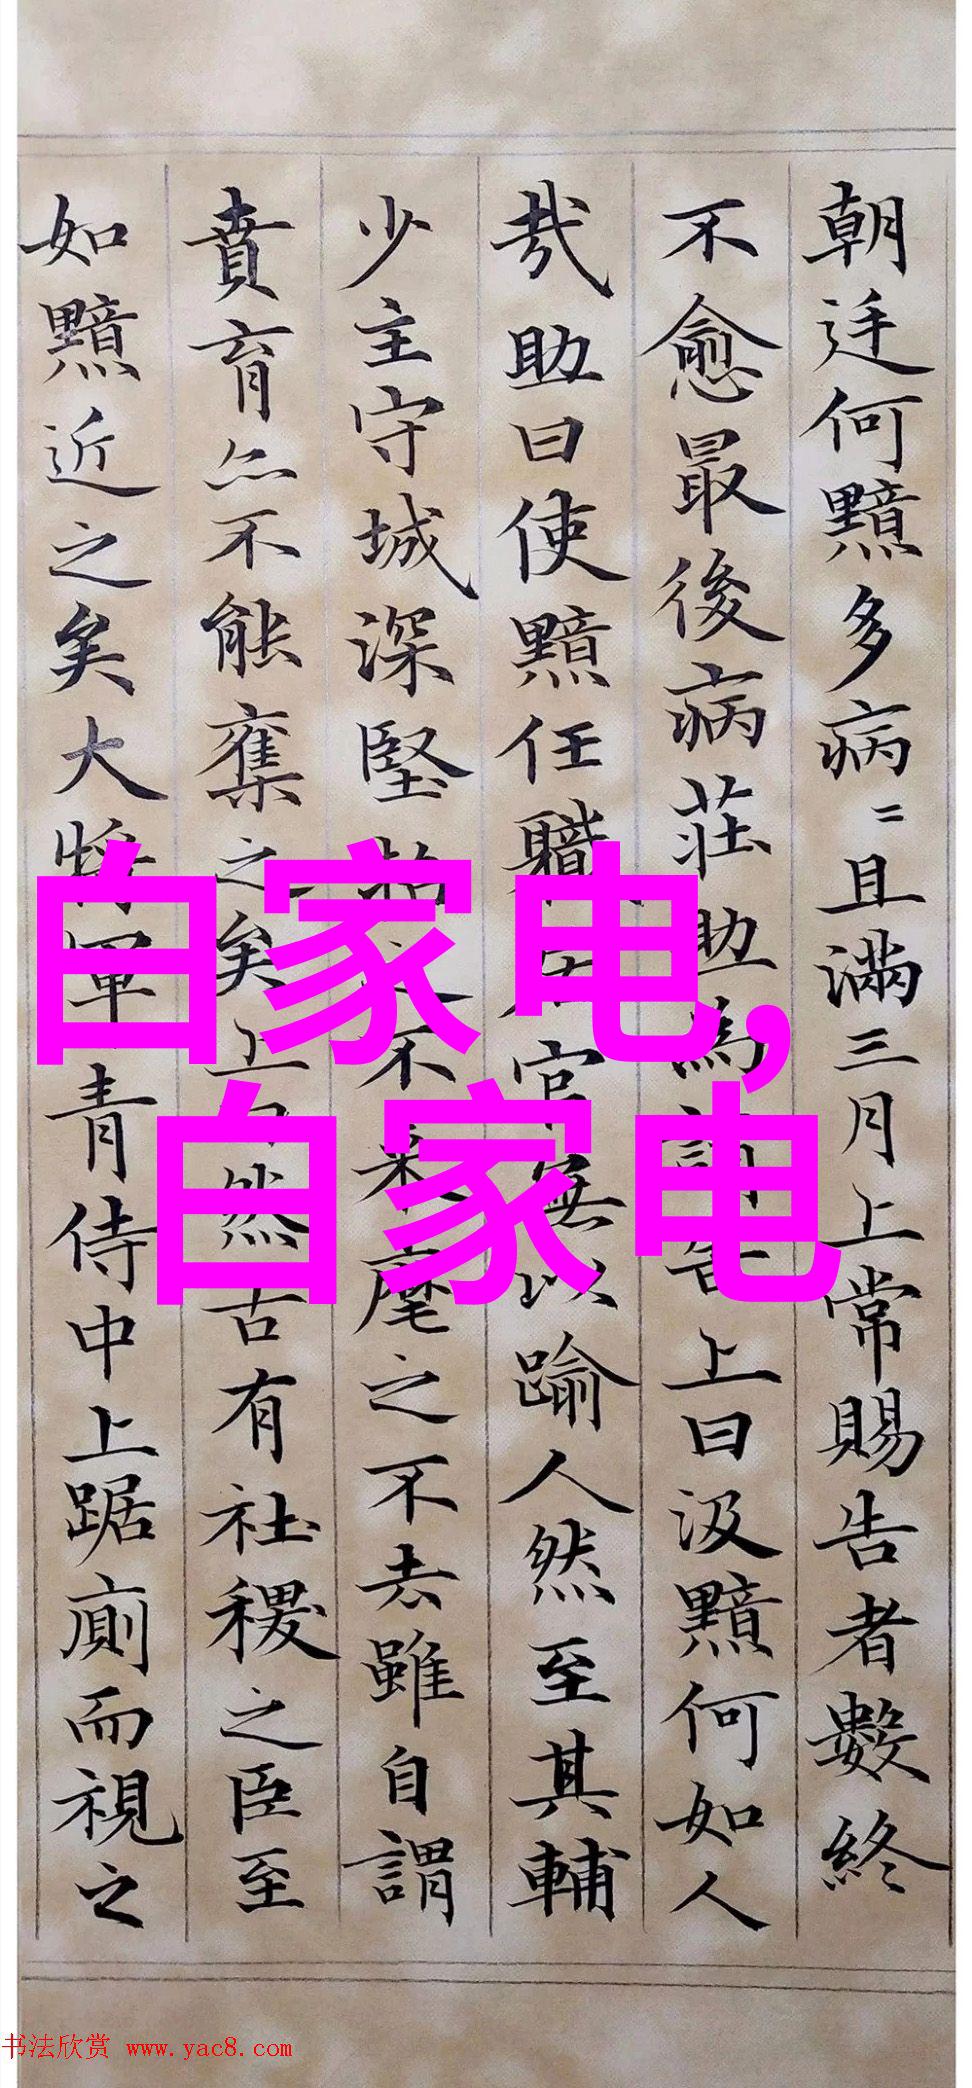 朝廷何黯多病〻且滿三月上常賜告者數終
不愈最後病莊助為請告上曰汲黯何如人
哉助曰使黯任職居官無以踰人然至其輔
少主守城深堅招之不來麾之不去雖自謂
賁育亦不能奪之矣上曰然古有社稷之臣至
如黯近之矣大將軍青侍中上踞廁而視之
白家电,
白家电
书法欣赏 www.yac8.com